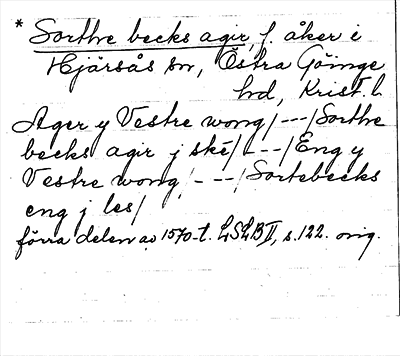 * Sorthe becks agir, f. åker i
Hjärsås sn, Östra Göinge
hd, Krist. l.
Ager y Vestre wong/---/Sorthe
becks agir j ské/---/Eng y
Vestre wong/---/Sortebecks
eng j les/
förra delen av 1570-t. LSLB II, s. 122. orig.